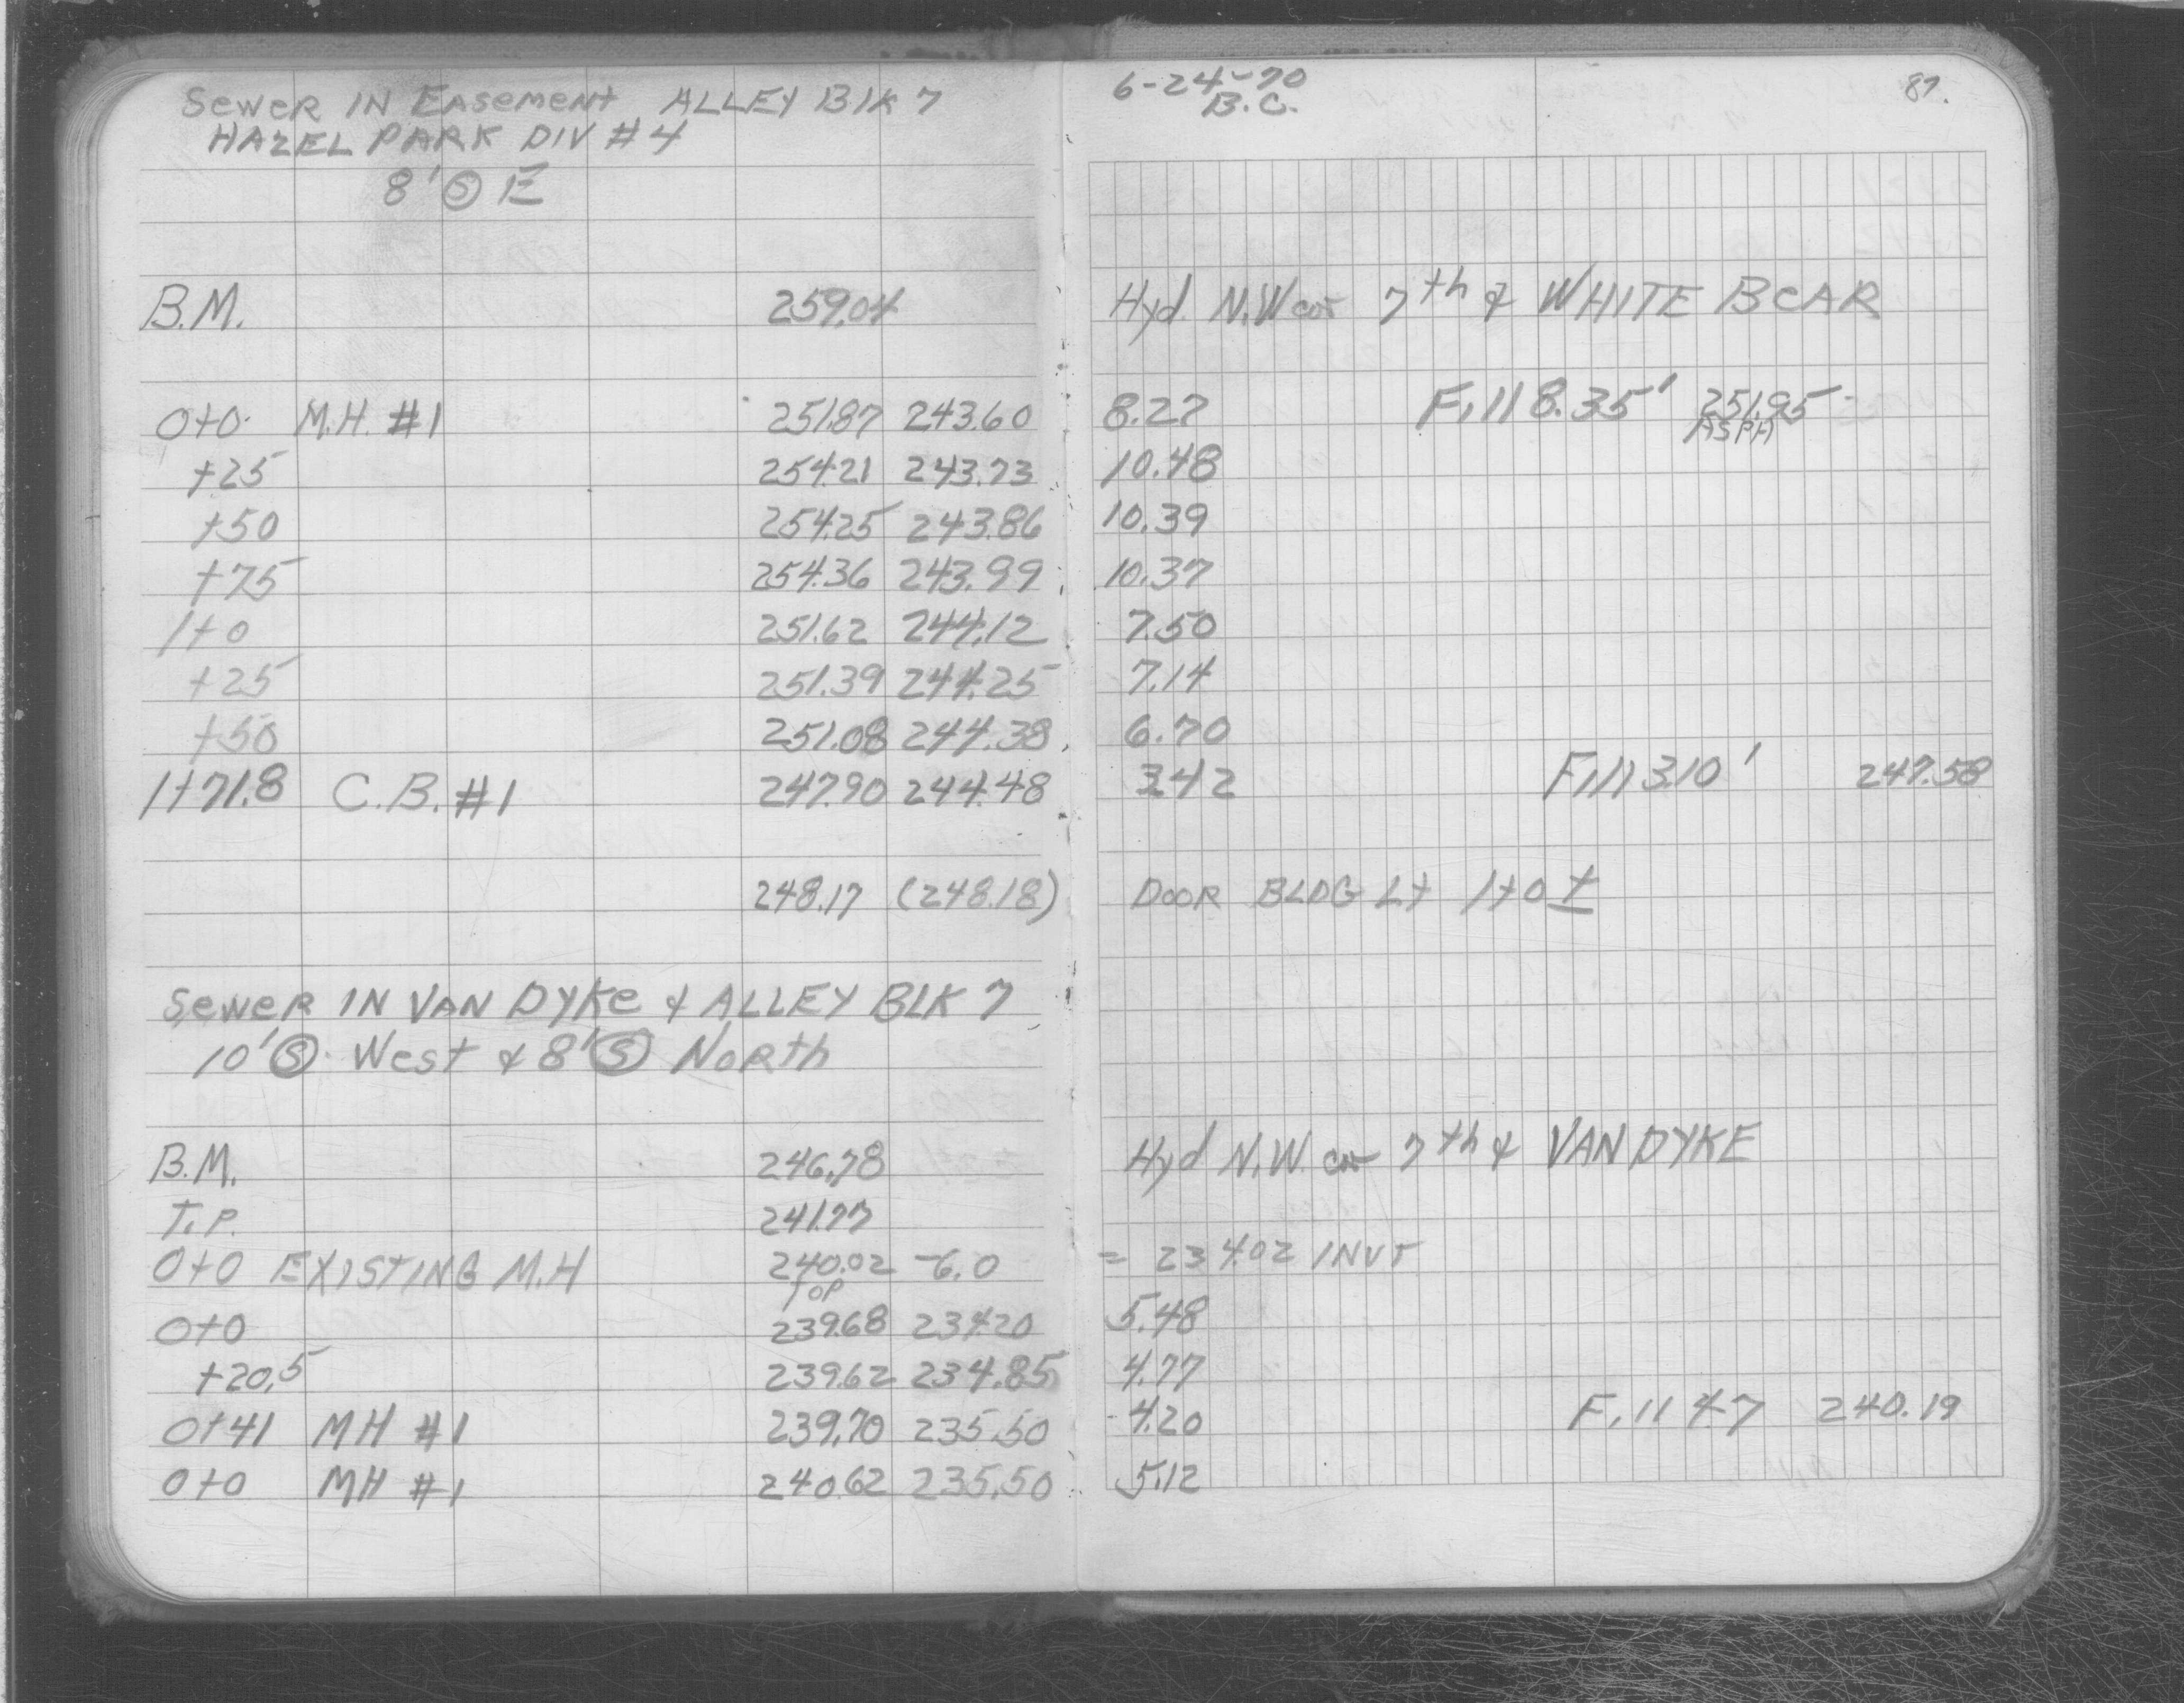 Sewer IN Easement ALLEY Blk 7
HAZEL PARK DIV #4
8' Ⓢ E
6-24-70
B.C.
87.
B.M. 259.04 Hyd. N.W cor 7th & WHITE BeAR
0+0 M.H. #1 251.87 243.60 8.27 Fill 8.35' 251.95
ASPH
+25 254.21 243.73 10.48
+50 254.25 243.86 10.39
+75 254.36 243.99 10.37
1+0 251.62 244.12 7.50
+25 251.39 244.25 7.14
+50 251.08 244.38 6.70
1+71.8 C.B. #1 247.90 244.48 3.42 Fill 3.10' 247.58
248.17 (248.18) DOOR BLDG Lt 1+0 ±
SeweR IN VAN DYKe & ALLEY BLK 7
10' Ⓢ West & 8' Ⓢ NoRth
B.M. 246.78 Hyd N.W. cor 7th & VAN DYKE
T.P. 241.77
0+0 EXISTING M.H 240.02 -6.0 = 234.02 INVT
TOP
0+0 239.68 234.20 5.48
+20.5 239.62 234.85 4.77
0+41 MH #1 239.70 235.50 4.20 Fill 4.7 240.19
0+0 MH #1 240.62 235.50 5.12